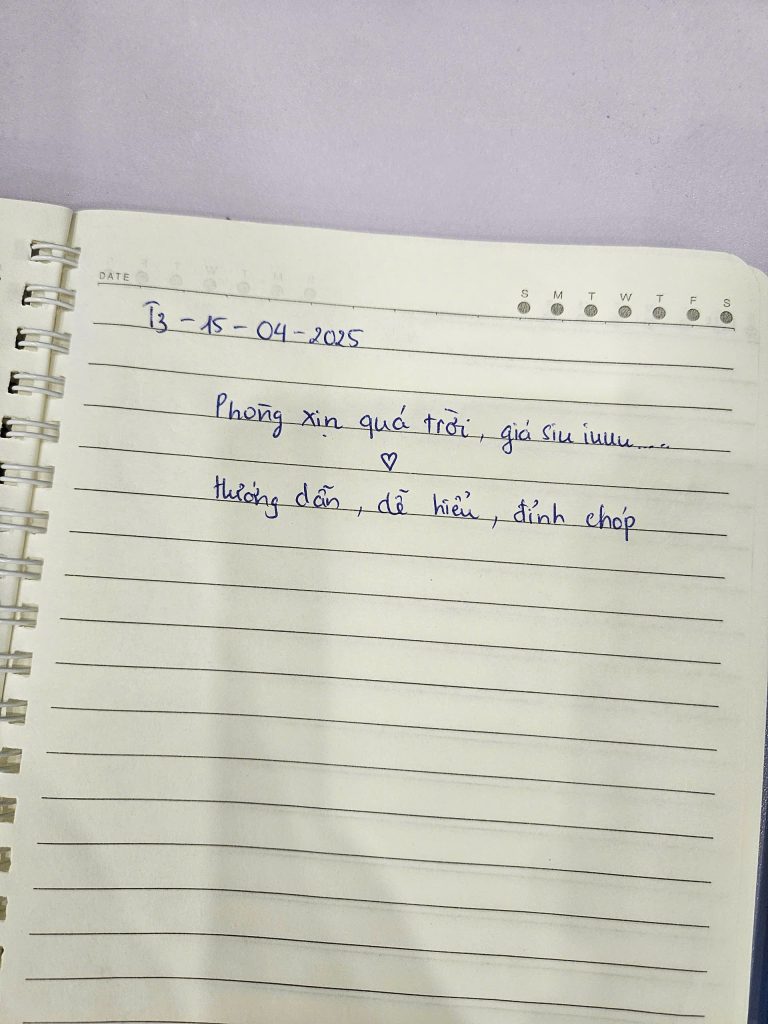 DATE
S M T W T F S
T3 - 15 - 04 - 2025
Phòng xịn quá trời, giá siu iuuu....
♡
Hướng dẫn, dễ hiểu, đỉnh chóp